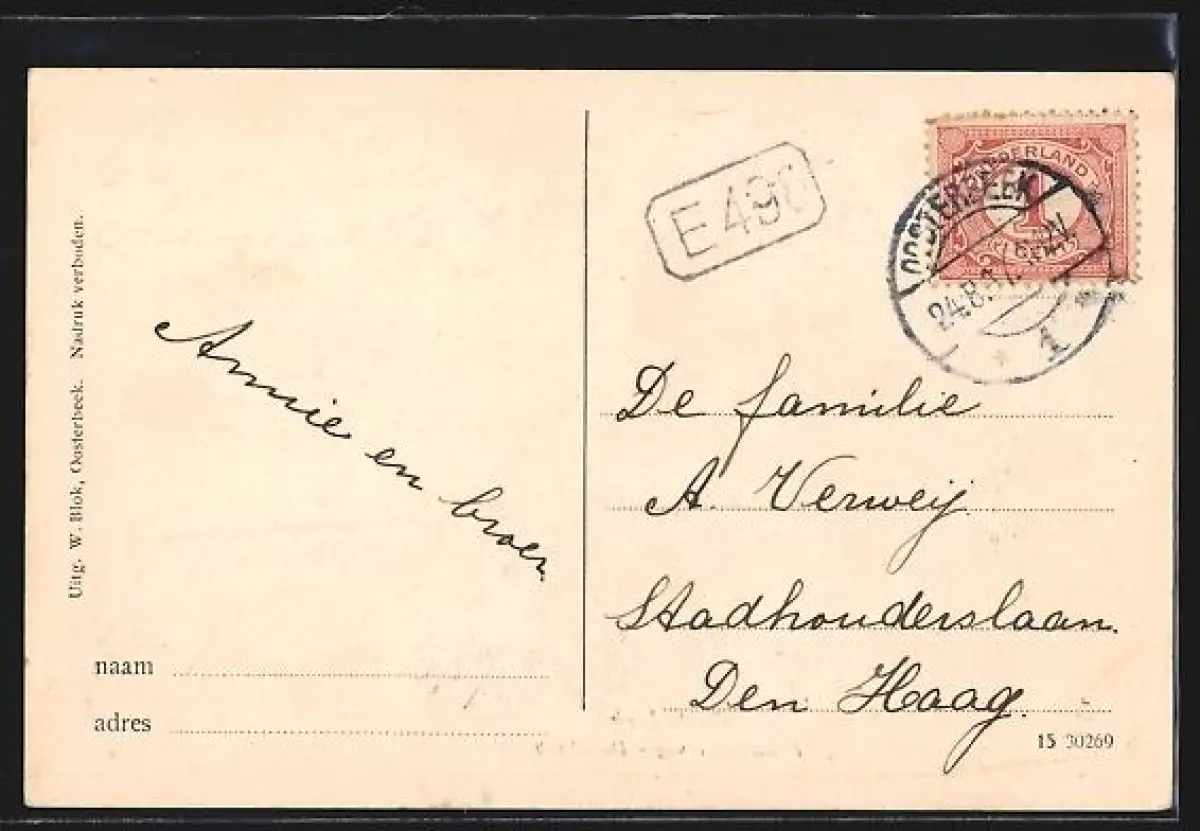 Uitg. W. Blok, Oosterbeek. Nadruk verboden.
Annie en broer
naam
adres
E 49
NEDERLAND
1
CENT
OOSTERBEEK
24.8. N.
1
De familie
A. Verweij
Stadhouderslaan.
Den Haag.
15 30269